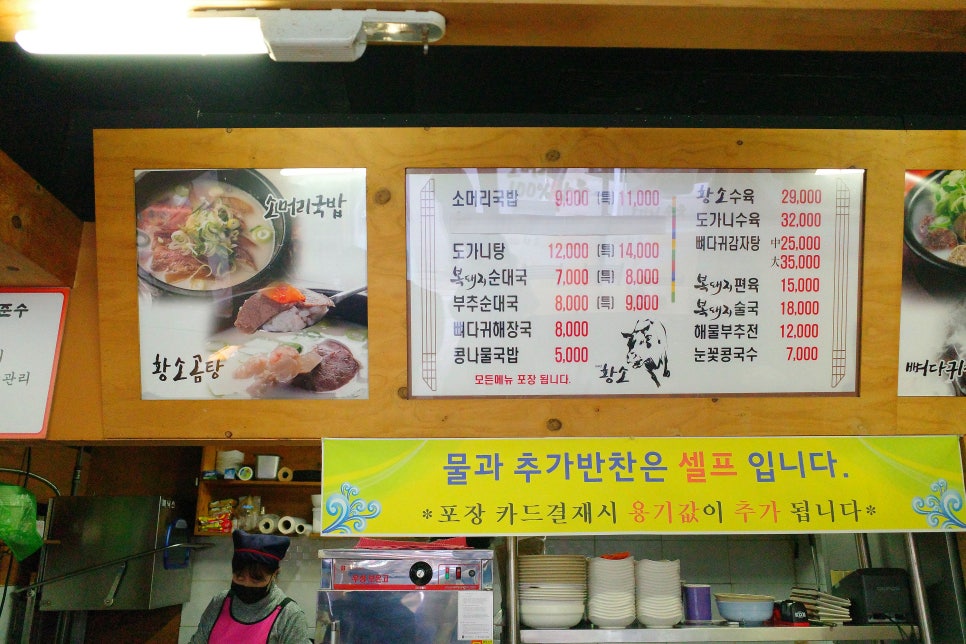 소머리국밥
황소곰탕
소머리국밥 9,000 (특) 11,000
도가니탕 12,000 (특) 14,000
복돼지순대국 7,000 (특) 8,000
부추순대국 8,000 (특) 9,000
뼈다귀해장국 8,000
콩나물국밥 5,000
모든메뉴 포장 됩니다.
황소
황소수육 29,000
도가니수육 32,000
뼈다귀감자탕 中25,000
大35,000
복돼지편육 15,000
복돼지술국 18,000
해물부추전 12,000
눈꽃콩국수 7,000
뼈다귀
관리
물과 추가반찬은 셀프 입니다.
*포장 카드결재시 용기값이 추가 됩니다*